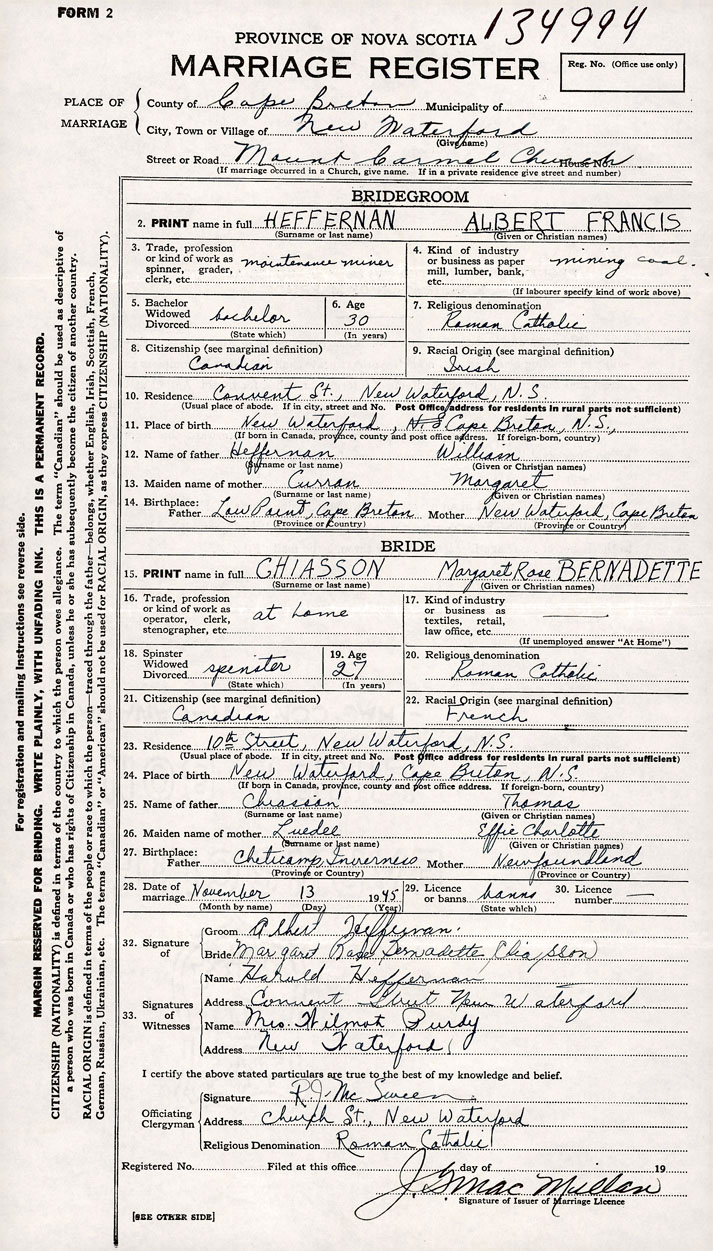 FORM 2
134994
PROVINCE OF NOVA SCOTIA
MARRIAGE REGISTER
Reg. No. (Office use only)
PLACE OF MARRIAGE
County of Cape Breton Municipality of
City, Town or Village of New Waterford
(Give name)
Street or Road Mount Carmel Church House No.
(If marriage occurred in a Church, give name. If in a private residence give street and number)
BRIDEGROOM
2. PRINT name in full HEFFERNAN ALBERT FRANCIS
(Surname or last name) (Given or Christian names)
3. Trade, profession or kind of work as spinner, grader, clerk, etc. maintenance miner
4. Kind of industry or business as paper mill, lumber, bank, etc. mining coal.
(If labourer specify kind of work above)
5. Bachelor Widowed Divorced bachelor
(State which)
6. Age 30
(In years)
7. Religious denomination
Roman Catholic
8. Citizenship (see marginal definition)
Canadian
9. Racial Origin (see marginal definition)
Irish
10. Residence Convent St., New Waterford, N.S.
(Usual place of abode. If in city, street and No. Post Office address for residents in rural parts not sufficient)
11. Place of birth New Waterford, N.S Cape Breton, N.S.,
(If born in Canada, province, county and post office address. If foreign-born, country)
12. Name of father Heffernan William
(Surname or last name) (Given or Christian names)
13. Maiden name of mother Curran Margaret
(Surname or last name) (Given or Christian names)
14. Birthplace: Father Low Point, Cape Breton Mother New Waterford, Cape Breton
(Province or Country) (Province or Country)
BRIDE
15. PRINT name in full CHIASSON Margaret Rose BERNADETTE
(Surname or last name) (Given or Christian names)
16. Trade, profession or kind of work as operator, clerk, stenographer, etc. at home
17. Kind of industry or business as textiles, retail, law office, etc.
(If unemployed answer "At Home")
18. Spinster Widowed Divorced spinster
(State which)
19. Age 27
(In years)
20. Religious denomination
Roman Catholic
21. Citizenship (see marginal definition)
Canadian
22. Racial Origin (see marginal definition)
French
23. Residence 10th Street, New Waterford, N.S.
(Usual place of abode. If in city, street and No. Post Office address for residents in rural parts not sufficient)
24. Place of birth New Waterford, Cape Breton, N.S.
(If born in Canada, province, county and post office address. If foreign-born, country)
25. Name of father Chiasson Thomas
(Surname or last name) (Given or Christian names)
26. Maiden name of mother Luedee Effie Charlotte
(Surname or last name) (Given or Christian names)
27. Birthplace: Father Cheticamp, Inverness Mother Newfoundland
(Province or Country) (Province or Country)
28. Date of marriage November 13 1945
(Month by name) (Day) (Year)
29. Licence or banns banns
(State which)
30. Licence number —
32. Signature of
Groom Albert Heffernan.
Bride Margaret Rose Bernadette Chiasson
33. Signatures of Witnesses
Name Harold Heffernan
Address Convent Street New Waterford
Name Mrs. Wilmot Purdy
Address New Waterford
I certify the above stated particulars are true to the best of my knowledge and belief.
Officiating Clergyman
Signature R.J. McSween
Address Church St., New Waterford
Religious Denomination Roman Catholic
Registered No. Filed at this office day of 19
J. G. MacMullan
Signature of Issuer of Marriage Licence
[SEE OTHER SIDE]
For registration and mailing instructions see reverse side.
MARGIN RESERVED FOR BINDING. WRITE PLAINLY, WITH UNFADING INK. THIS IS A PERMANENT RECORD.
CITIZENSHIP (NATIONALITY) is defined in terms of the country to which the person owes allegiance. The term "Canadian" should be used as descriptive of
a person who was born in Canada or who has rights of Citizenship in Canada, unless he or she has subsequently become the citizen of another country.
RACIAL ORIGIN is defined in terms of the people or race to which the person—traced through the father—belongs, whether English, Irish, Scottish, French,
German, Russian, Ukrainian, etc. The terms "Canadian" or "American" should not be used for RACIAL ORIGIN, as they express CITIZENSHIP (NATIONALITY).